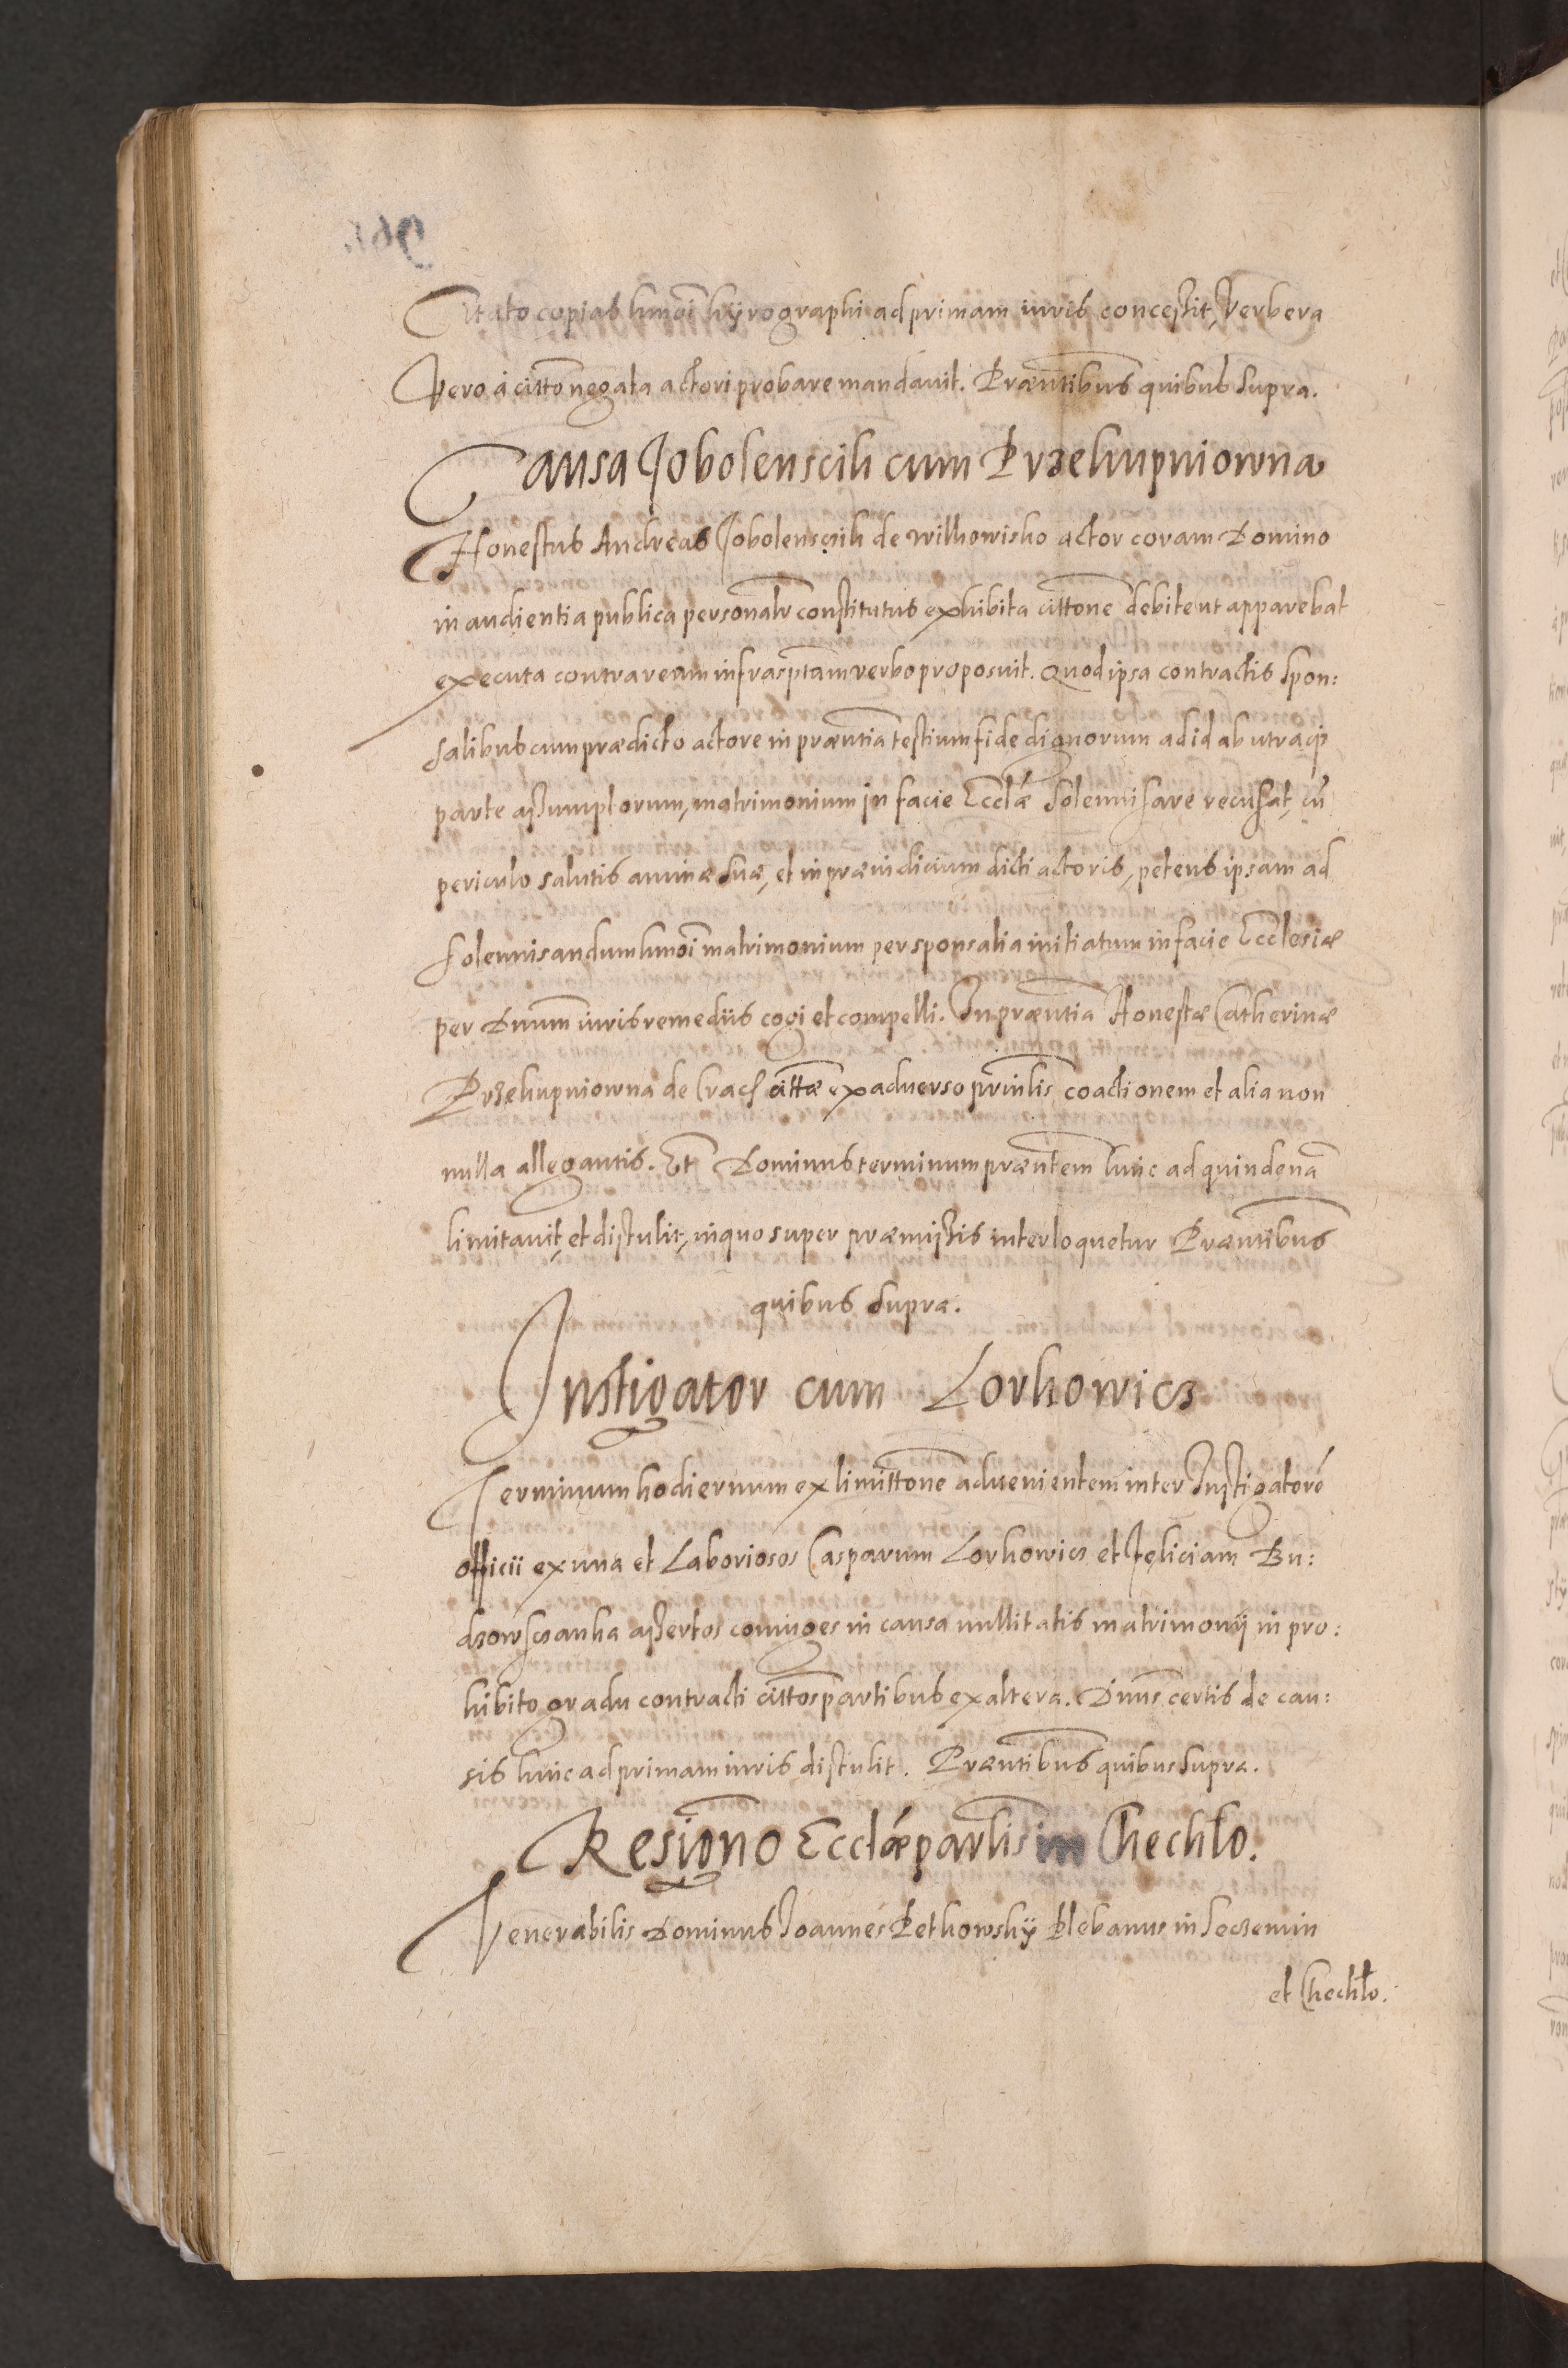 Citato copias hmoi hyrographi ad primam iuris concessit, Verbera
Vero a citto negata actori probare mandauit. Præntibus quibus supra.
Causa Jobolenscik cum Przekupniowna
Honestus Andreas Jobolenscik de wilkowisko actor coram Domino
in audientia publica personalr constitutus exhibita cittone debite ut apparebat
executa contra ream infrasptam verbo proposuit. Quod ipsa contractis spon:
salibus cum prædicto actore in præntia testium fide dignorum ad id ab utraq
parte assumptorum, matrimonium in facie Ecclæ solennisare recusat, cū
periculo salutis animæ suæ, et in præiudicium dicti actoris, petens ipsam ad
solennisandum hmoi matrimonium per sponsalia initiatum in facie Ecclesiæ
per Dnum iuris remediis cogi et compelli. In præntia Honestæ Catherinæ
Przekupniowna de Crac cittæ ex aduerso prinlis coactionem et alia non
nulla allegantis. Et Dominus terminum præntem hinc ad quindenā
limitauit, et distulit, in quo super præmissis interloquetur Præntibus
quibus supra.
Instigator cum Lorkowicz
Terminum hodiernum ex limittone aduenientem inter Instigatorē
officii ex una et Laboriosos Casparum Lorkowicz et Feliciam Bu:
dzowsczanka assertos coniuges in causa nullitatis matrimonij in pro:
hibito gradu contracti cittos partibus ex altera. Dnus certis de cau:
sis hinc ad primam iuris distulit. Præntibus quibus supra.
Resigno Ecclæ parlis in Chechlo.
Venerabilis Dominus Joannes Petkowskÿ Plebanus in Seczemin
et Chechło.